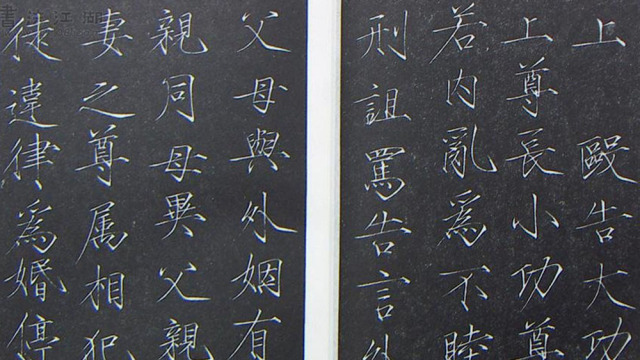 上 毆告大功
上尊長小功尊
若内亂爲不睦
刑詛罵告言外
父母與外姻有
親同母異父親
妻之尊属相犯
徒違律爲婚停